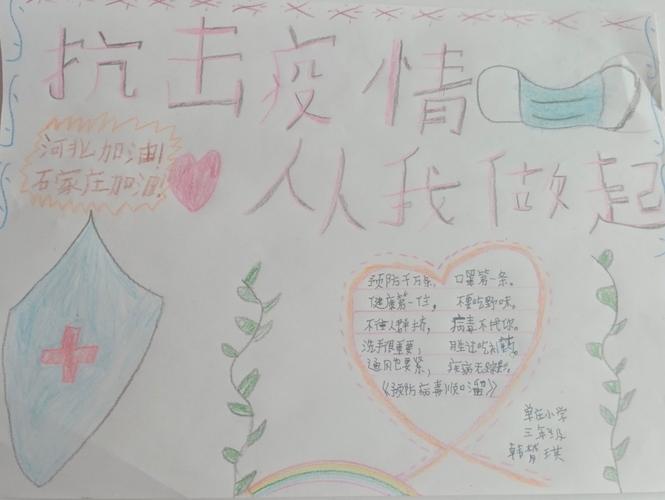 抗击疫情
从我做起
河北加油!
石家庄加油!
预防千万条, 口罩第一条。
健康第一位, 不要吃野味。
不往人群挤, 病毒不找你。
洗手很重要, 胜过吃补药。
通风也要紧, 疾病无踪影。
《预防病毒顺口溜》
单庄小学
三年级
韩
琪